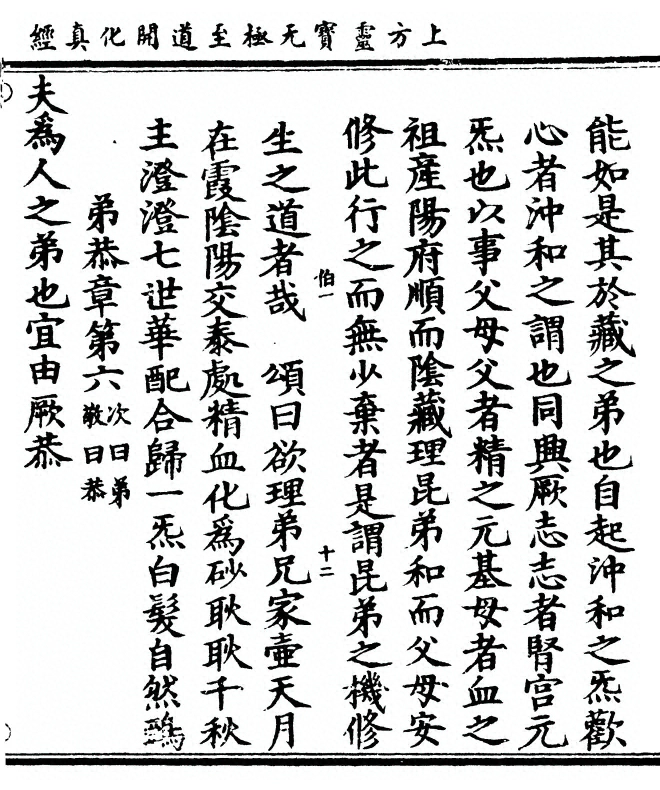 上方靈寶无極至道開化真經
能如是其於藏之弟也自起沖和之炁歡
心者沖和之謂也同興厥志志者腎宮元
炁也以事父母父者精之元基母者血之
祖產陽府順而陰藏理昆弟和而父母安
修此行之而無少棄者是謂昆弟之機修
伯一
十二
生之道者哉 頌曰欲理弟兄家壷天月
在霞陰陽交泰處精血化為砂耿耿千秋
主澄澄七世華配合歸一炁白髮自然鵶
弟恭章第六次曰弟敬曰恭
夫為人之弟也宜由厥恭